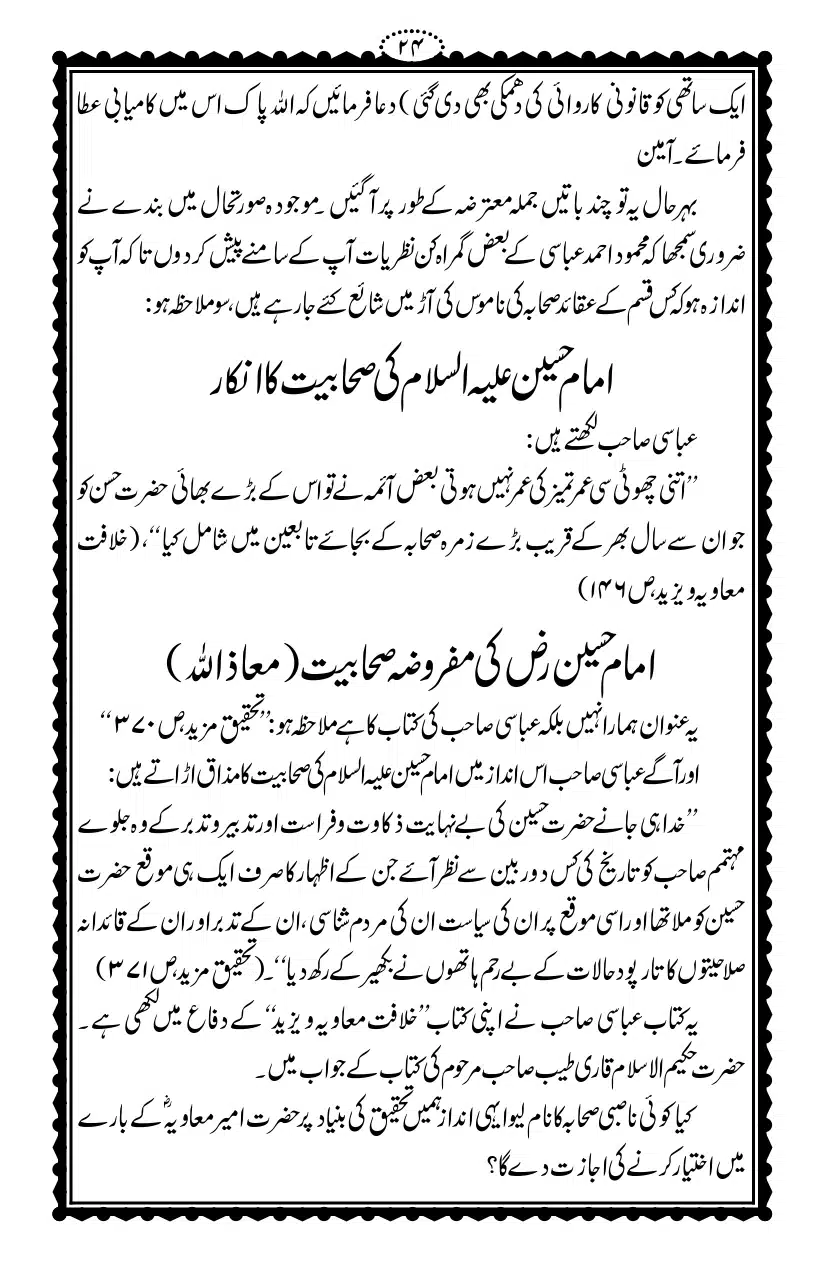 ۲۴
ایک ساتھی کو قانونی کاروائی کی دھمکی بھی دی گئی) دعا فرمائیں کہ اللہ پاک اس میں کامیابی عطا
فرمائے۔ آمین
بہرحال یہ تو چند باتیں جملہ معترضہ کے طور پر آگئیں ۔موجودہ صورتحال میں بندے نے
ضروری سمجھا کہ محمود احمد عباسی کے بعض گمراہ کن نظریات آپ کے سامنے پیش کردوں تاکہ آپ کو
اندازہ ہو کہ کس قسم کے عقائد صحابہ کی ناموس کی آڑ میں شائع کئے جارہے ہیں، سو ملاحظہ ہو:
امام حسین علیہ السلام کی صحابیت کا انکار
عباسی صاحب لکھتے ہیں:
’’اتنی چھوٹی سی عمر تمیز کی عمر نہیں ہوتی بعض آئمہ نے تو اس کے بڑے بھائی حضرت حسن کو
جو ان سے سال بھر کے قریب بڑے زمرہ صحابہ کے بجائے تابعین میں شامل کیا‘‘، (خلافت
معاویہ و یزید، ص ۱۴۶)
امام حسین رض کی مفروضہ صحابیت (معاذ اللہ)
یہ عنوان ہمارا نہیں بلکہ عباسی صاحب کی کتاب کا ہے ملاحظہ ہو: ’’تحقیق مزید، ص ۳۷۰‘‘
اور آگے عباسی صاحب اس انداز میں امام حسین علیہ السلام کی صحابیت کا مذاق اڑاتے ہیں:
’’خدا ہی جانے حضرت حسین کی بے نہایت ذکاوت و فراست اور تدبیر و تدبر کے وہ جلوے
مہتمم صاحب کو تاریخ کی کس دوربین سے نظر آئے جن کے اظہار کا صرف ایک ہی موقع حضرت
حسین کو ملا تھا اور اسی موقع پر ان کی سیاست ان کی مردم شناسی، ان کے تدبر اور ان کے قائدانہ
صلاحیتوں کا تارپود حالات کے بے رحم ہاتھوں نے بکھیر کے رکھ دیا‘‘۔ (تحقیق مزید، ص ۳۷۱)
یہ کتاب عباسی صاحب نے اپنی کتاب ’’خلافت معاویہ و یزید‘‘ کے دفاع میں لکھی ہے۔
حضرت حکیم الاسلام قاری طیب صاحب مرحوم کی کتاب کے جواب میں۔
کیا کوئی ناصبی صحابہ کا نام لیوا یہی انداز ہمیں تحقیق کی بنیاد پر حضرت امیر معاویہؓ کے بارے
میں اختیار کرنے کی اجازت دے گا؟